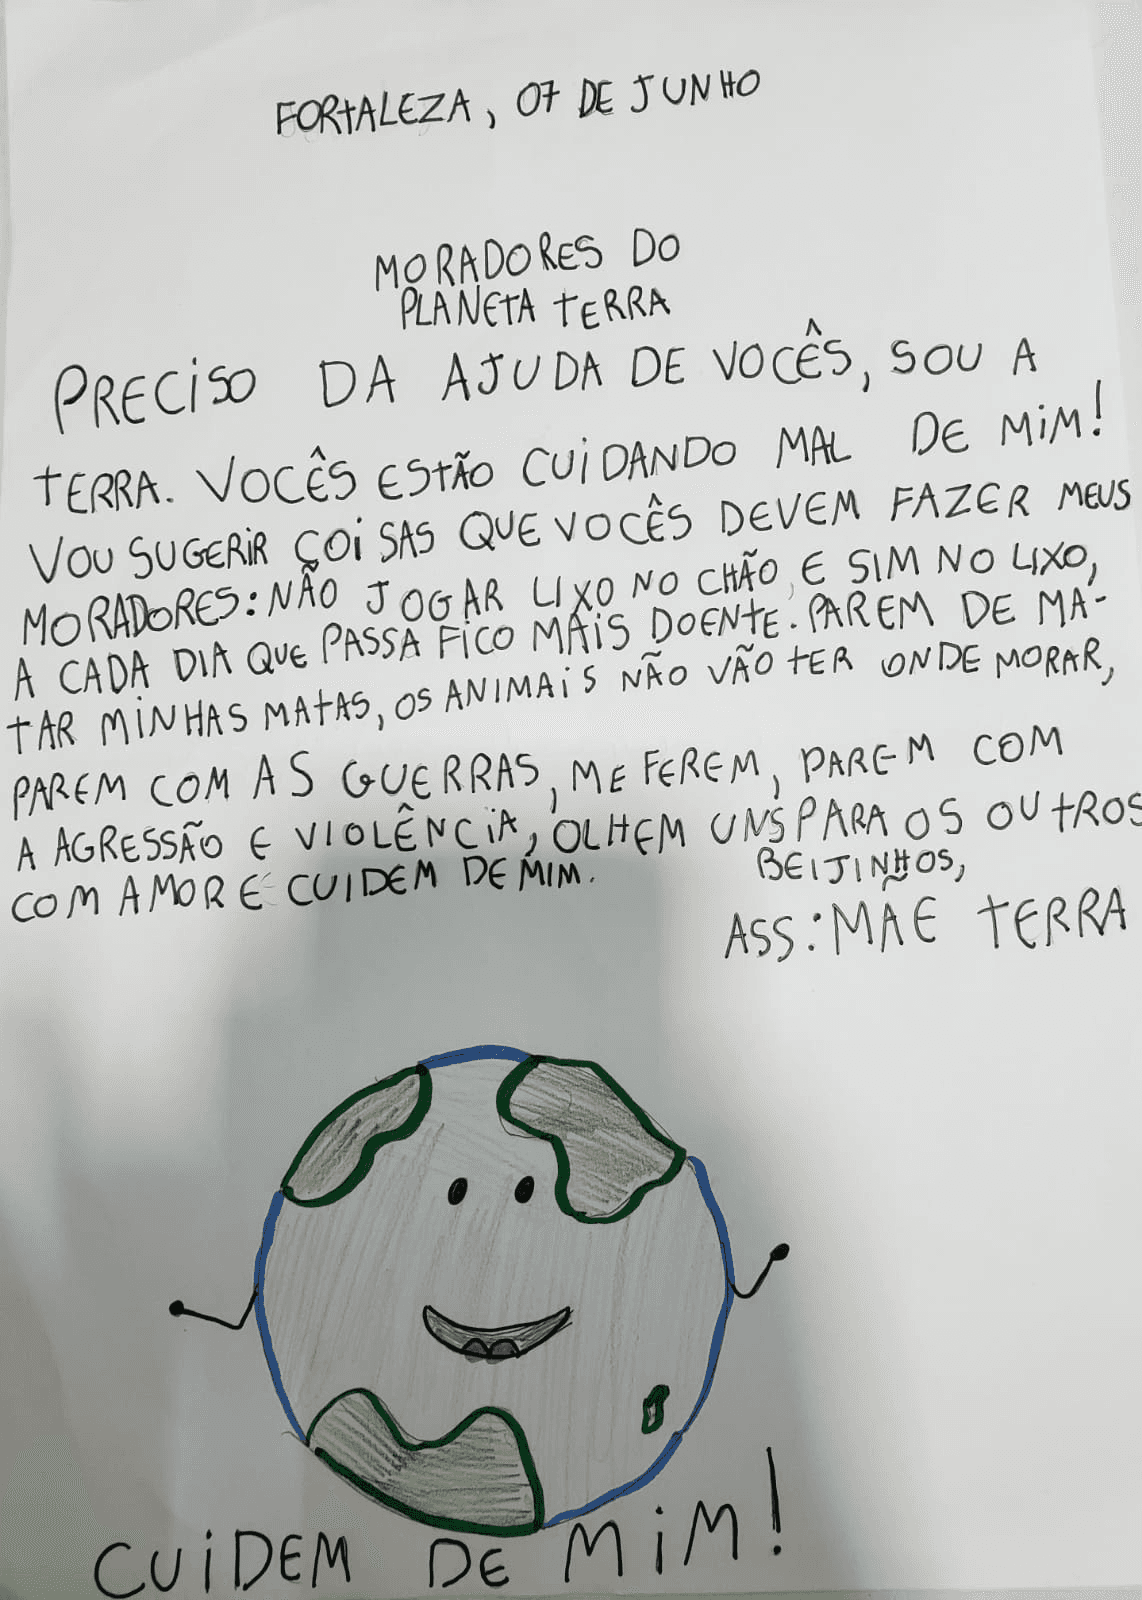 FORTALEZA, 07 DE JUNHO
MORADORES DO
PLANETA TERRA
PRECISO DA AJUDA DE VOCÊS, SOU A
TERRA. VOCÊS ESTÃO CUIDANDO MAL DE MIM!
VOU SUGERIR ÇOISAS QUE VOCÊS DEVEM FAZER MEUS
MORADORES: NÃO JOGAR LIXO NO CHÃO, E SIM NO LIXO,
A CADA DIA QUE PASSA FICO MAIS DOENTE. PAREM DE MA-
TAR MINHAS MATAS, OS ANIMAIS NÃO VÃO TER ONDE MORAR,
PAREM COM AS GUERRAS, ME FEREM, PAREM COM
A AGRESSÃO E VIOLÊNCIA, OLHEM UNS PARA OS OUTROS
COM AMOR E CUIDEM DE MIM.
BEIJINHOS,
ASS: MÃE TERRA
CUIDEM DE MIM!